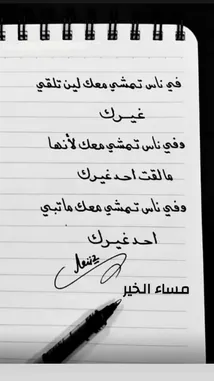 في ناس تمشي معك لين تلقي
غيرك
وفي ناس تمشي معك لأنها
مالقت احد غيرك
وفي ناس تمشي معك ماتبي
احد غيرك
مساء الخير